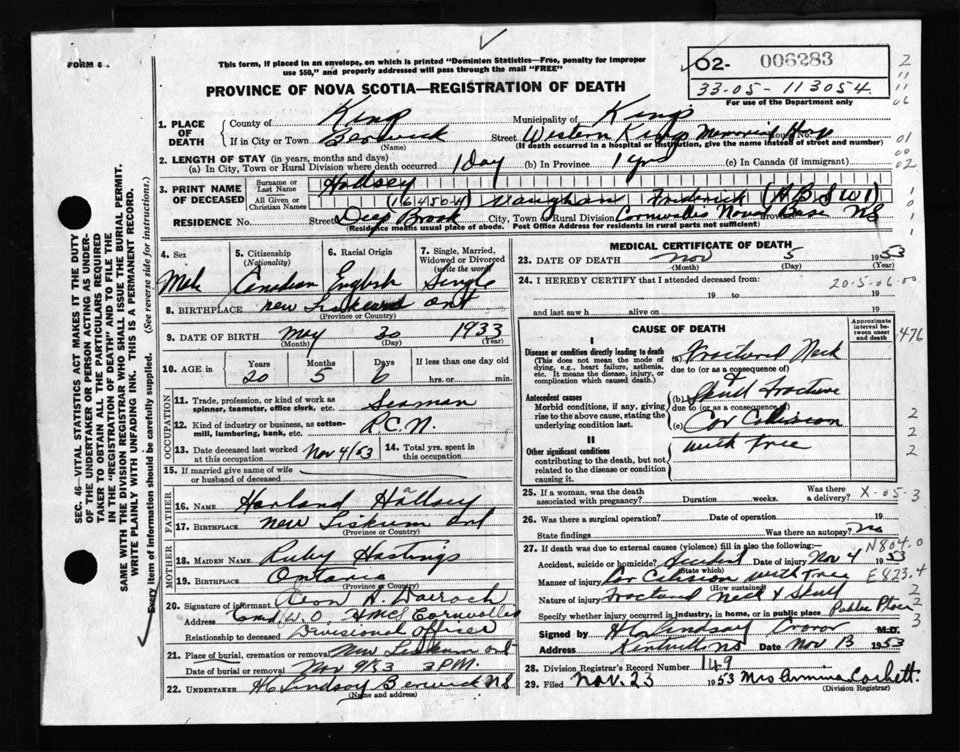 FORM 6
This form, if placed in an envelope, on which is printed "Dominion Statistics—Free, penalty for improper
use $50," and properly addressed will pass through the mail "FREE"
PROVINCE OF NOVA SCOTIA—REGISTRATION OF DEATH
02- 006283
33-05-113054
For use of the Department only
1. PLACE OF DEATH County of Kings Municipality of Kings
If in City or Town Berwick (Name) Street Western Kings Memorial Hosp House No.
(If death occurred in a hospital or institution, give the name instead of street and number)
2. LENGTH OF STAY (in years, months and days)
(a) In City, Town or Rural Division where death occurred 1 Day (b) In Province 1 yr (c) In Canada (if immigrant)
3. PRINT NAME OF DECEASED
Surname or Last Name Hallsey
All Given or Christian Names (16450-H) Vaughan Frederick (ABSW1)
RESIDENCE No. Street Deep Brook City, Town or Rural Division Cornwallis Naval Base Province NS
(Residence means usual place of abode. Post Office Address for residents in rural parts not sufficient)
4. Sex Male
5. Citizenship (Nationality) Canadian
6. Racial Origin English
7. Single, Married, Widowed or Divorced (write the word) Single
8. BIRTHPLACE New Liskeard ont
(Province or Country)
9. DATE OF BIRTH May 20 1933
(Month) (Day) (Year)
10. AGE in Years 20 Months 5 Days 6 If less than one day old hrs. or min.
OCCUPATION
11. Trade, profession, or kind of work as spinner, teamster, office clerk, etc. Seaman
12. Kind of industry or business, as cotton-mill, lumbering, bank, etc. R.C.N.
13. Date deceased last worked at this occupation Nov 4/53 14. Total yrs. spent in this occupation
15. If married give name of wife or husband of deceased
FATHER
16. NAME Harland Hallsey
17. BIRTHPLACE New Liskum ont
(Province or Country)
MOTHER
18. MAIDEN NAME Ruby Hastings
19. BIRTHPLACE Ontario
(Province or Country)
20. Signature of informant Leon A. Darrach
Address Cmd. O. HMCS Cornwallis
Relationship to deceased Divisional Officer
21. Place of burial, cremation or removal New Liskum ont
Date of burial or removal Nov 9/53 3 P.M.
22. UNDERTAKER H. Lindsay Berwick NS
(Name and address)
MEDICAL CERTIFICATE OF DEATH
23. DATE OF DEATH Nov 5 1953
(Month) (Day) (Year)
24. I HEREBY CERTIFY that I attended deceased from:
20-5-06-00
19 to 19
and last saw h alive on 19
CAUSE OF DEATH
Approximate interval between onset and death
476
I
Disease or condition directly leading to death
(This does not mean the mode of dying, e.g., heart failure, asthenia, etc. It means the disease, injury, or complication which caused death.)
(a) Fractured Neck
due to (or as a consequence of)
Antecedent causes
Morbid conditions, if any, giving rise to the above cause, stating the underlying condition last.
(b) Skull Fracture
due to (or as a consequence of)
(c) Car Collision
with Tree
II
Other significant conditions
contributing to the death, but not related to the disease or condition causing it.
25. If a woman, was the death associated with pregnancy? Duration weeks. Was there a delivery? X-05 3
26. Was there a surgical operation? Date of operation 19
State findings Was there an autopsy? No
27. If death was due to external causes (violence) fill in also the following:— N804.0
Accident, suicide or homicide? Accident (State which) Date of injury Nov 4 1953
Manner of injury Car Collision with Tree (How sustained) E823.4
Nature of injury Fractured Neck & Skull
Specify whether injury occurred in industry, in home, or in public place Public Place
Signed by H Lindsay Coroner M.D.
Address Kentville NS Date Nov 13 1953
28. Division Registrar's Record Number 149
29. Filed Nov. 23 1953 Mrs Ammina Corbett.
(Division Registrar)
SEC. 46—VITAL STATISTICS ACT MAKES IT THE DUTY
OF THE UNDERTAKER OR PERSON ACTING AS UNDER-
TAKER TO OBTAIN ALL THE PARTICULARS REQUIRED
IN THE "REGISTRATION OF DEATH" AND TO FILE THE
SAME WITH THE DIVISION REGISTRAR WHO SHALL ISSUE THE BURIAL PERMIT.
WRITE PLAINLY WITH UNFADING INK. THIS IS A PERMANENT RECORD.
Every item of information should be carefully supplied. (See reverse side for instructions.)